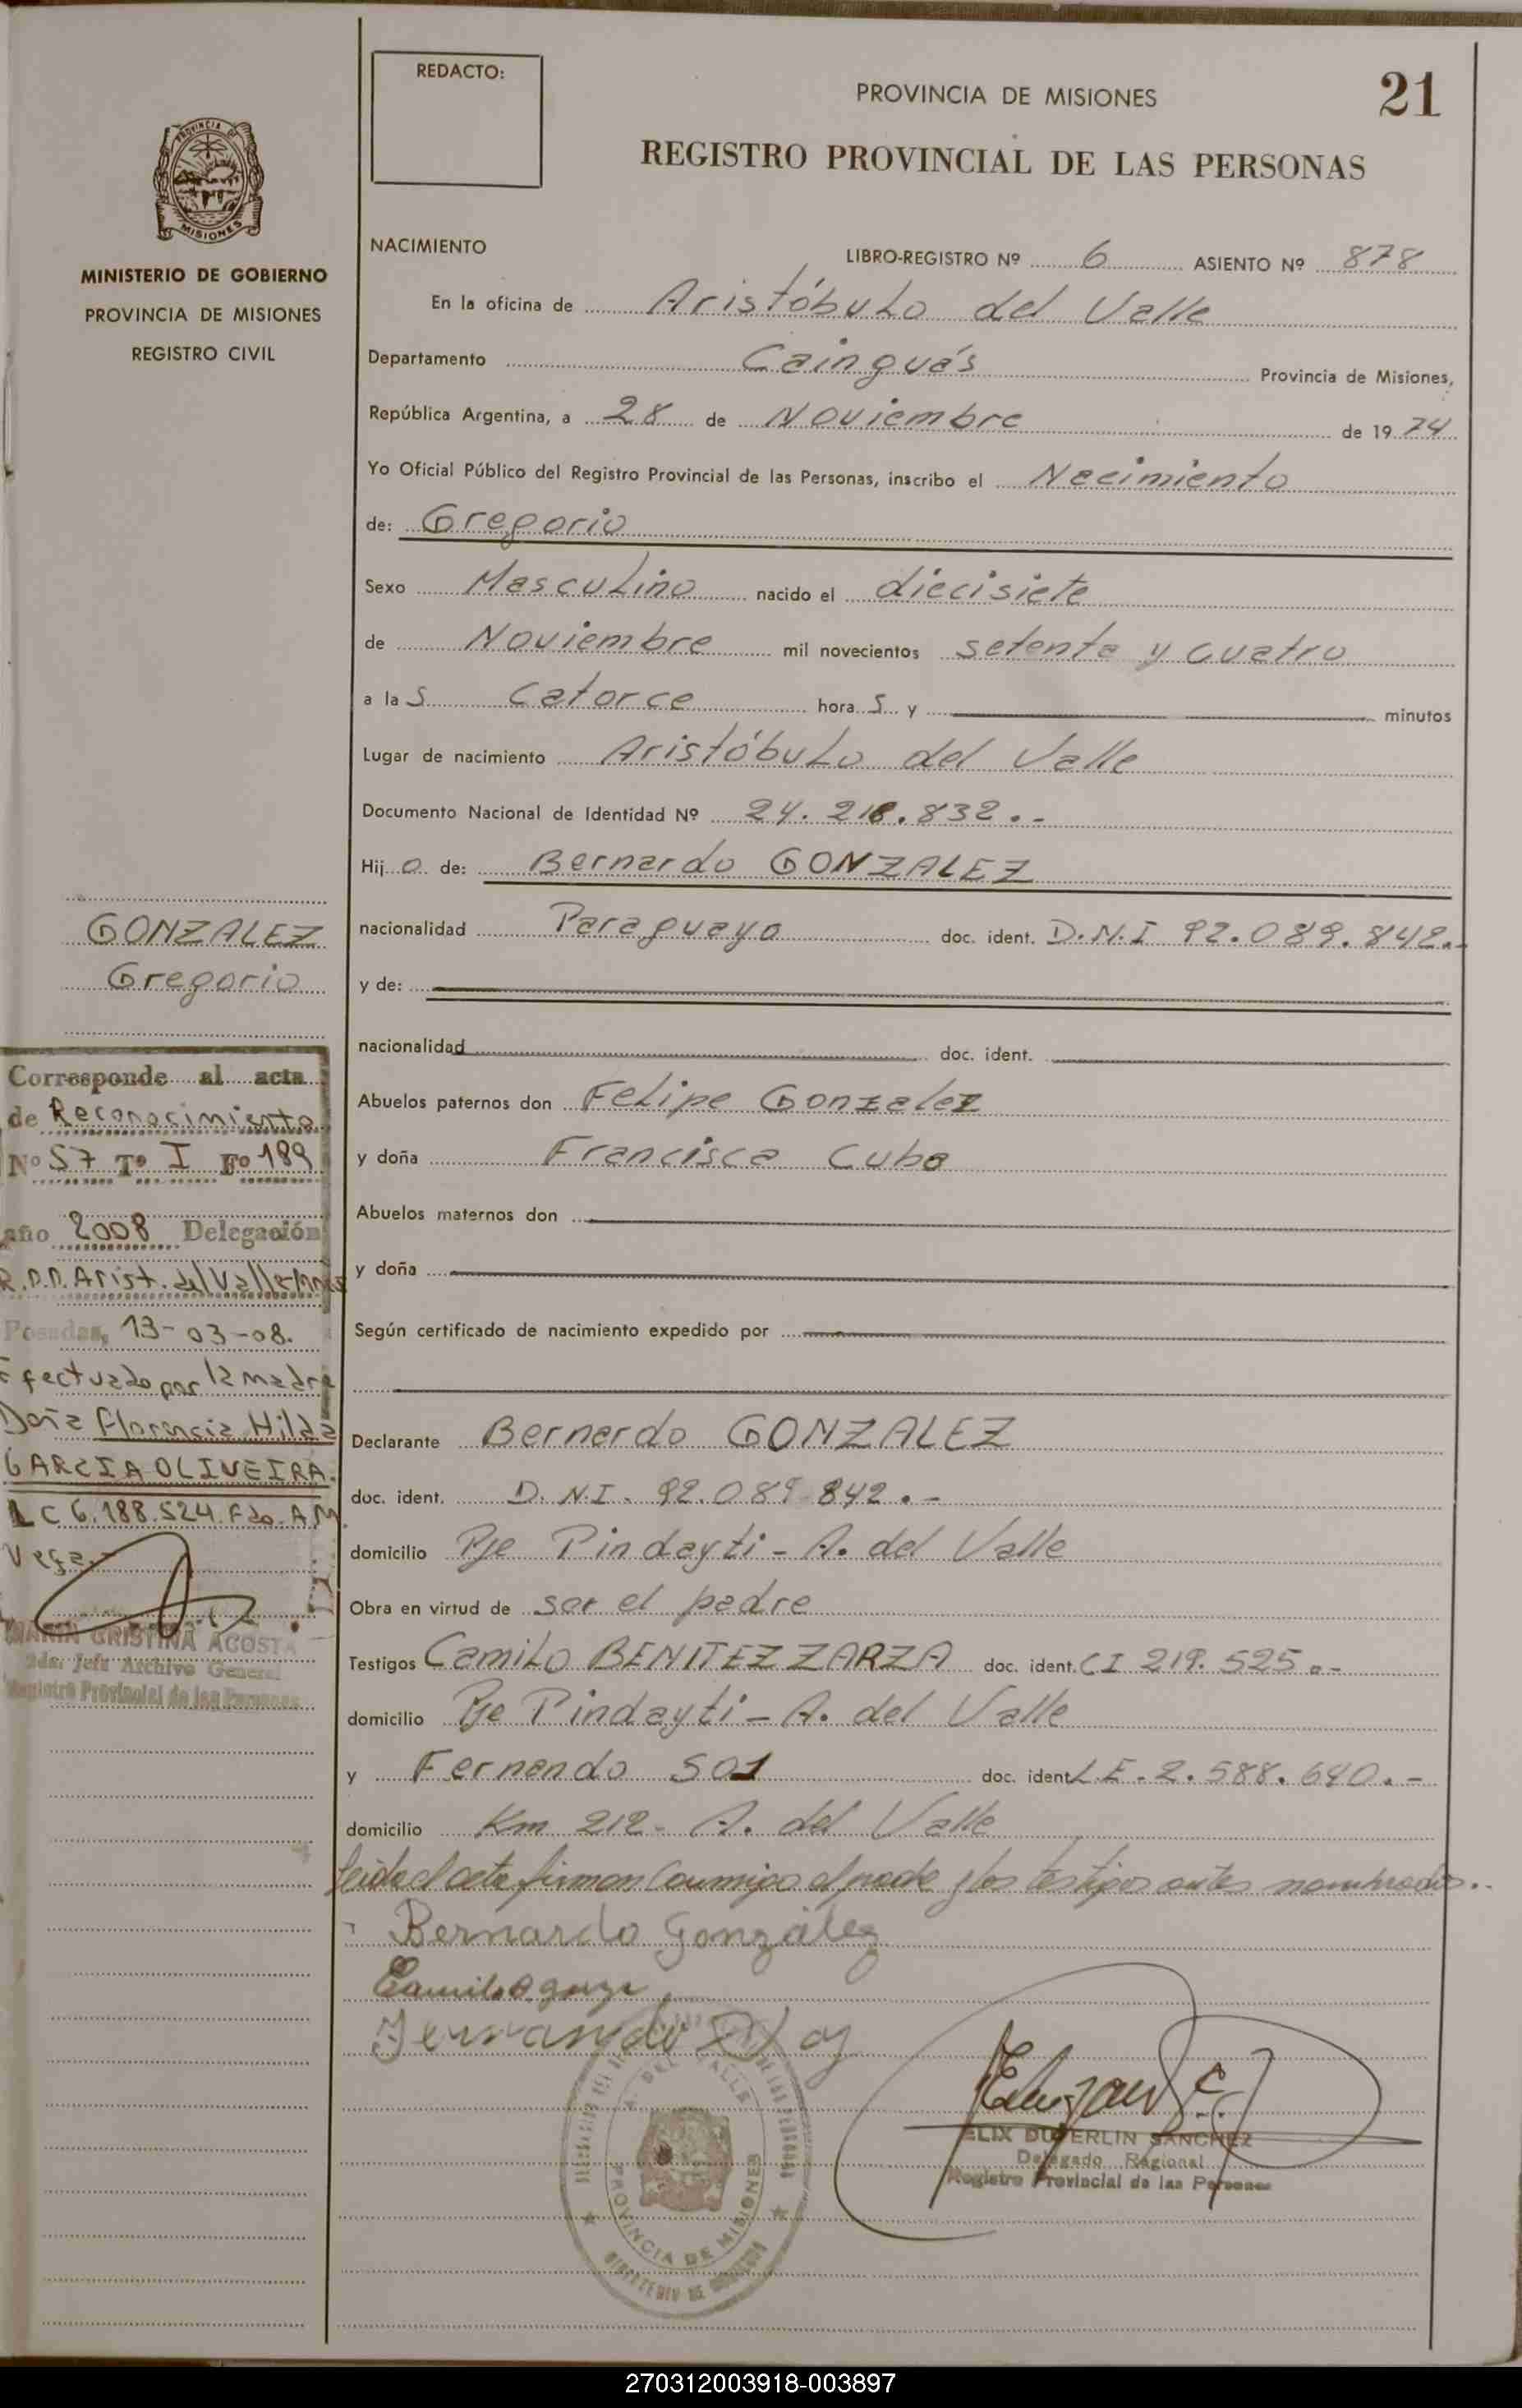 REDACTO:
PROVINCIA DE MISIONES
21
REGISTRO PROVINCIAL DE LAS PERSONAS
PROVINCIA DE
MISIONES
MINISTERIO DE GOBIERNO
PROVINCIA DE MISIONES
REGISTRO CIVIL
NACIMIENTO
LIBRO-REGISTRO Nº 6 ASIENTO Nº 878
En la oficina de Aristóbulo del Valle
Departamento Cainguás Provincia de Misiones,
República Argentina, a 28 de Noviembre de 1974
Yo Oficial Público del Registro Provincial de las Personas, inscribo el Nacimiento
de: Gregorio
Sexo Masculino nacido el diecisiete
de Noviembre mil novecientos setenta y cuatro
a las catorce horas y minutos
Lugar de nacimiento Aristóbulo del Valle
Documento Nacional de Identidad Nº 24.218.832.-
Hijo de: Bernardo GONZALEZ
nacionalidad Paraguaya doc. ident. D.N.I 92.089.842.-
y de:
nacionalidad doc. ident.
Abuelos paternos don Felipe Gonzalez
y doña Francisca Cuba
Abuelos maternos don
y doña
Según certificado de nacimiento expedido por
Declarante Bernardo GONZALEZ
doc. ident. D.N.I. 92.089.842.-
domicilio Pje Pindayti - A. del Valle
Obra en virtud de ser el padre
Testigos Camilo BENITEZ ZARZA doc. ident. C I 219.525.-
domicilio Pje Pindayti - A. del Valle
y Fernando SOI doc. ident L.E. 2.588.640.-
domicilio Km 212 - A. del Valle
leida el acta firman conmigo el padre y los testigos antes nombrados.-
Bernardo González
Camilo
Fernando
GONZALEZ
Gregorio
Corresponde al acta
de Reconocimiento
Nº 57 Tº I Fº 189
año 2008 Delegación
Arist. del Valle Mnes
Posadas, 13-03-08.
Efectuado por la madre
Doña Florencia Hilda
GARCIA OLIVEIRA.
L C 6.188.524. Fdo. A.M
Vega.-
MARIA CRISTINA ACOSTA
2da. Jefe Archivo General
Registro Provincial de las Personas
A. DEL VALLE
PROVINCIA DE MISIONES
ELIX DUVERLIN SANCHEZ
Delegado Regional
Registro Provincial de las Personas
270312003918-003897